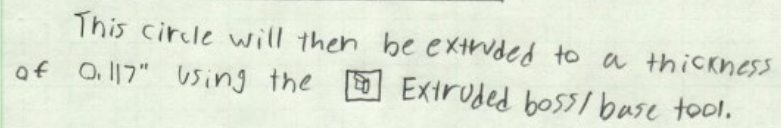 This circle will then be extruded to a thickness
of 0.117" using the Extruded boss/base tool.